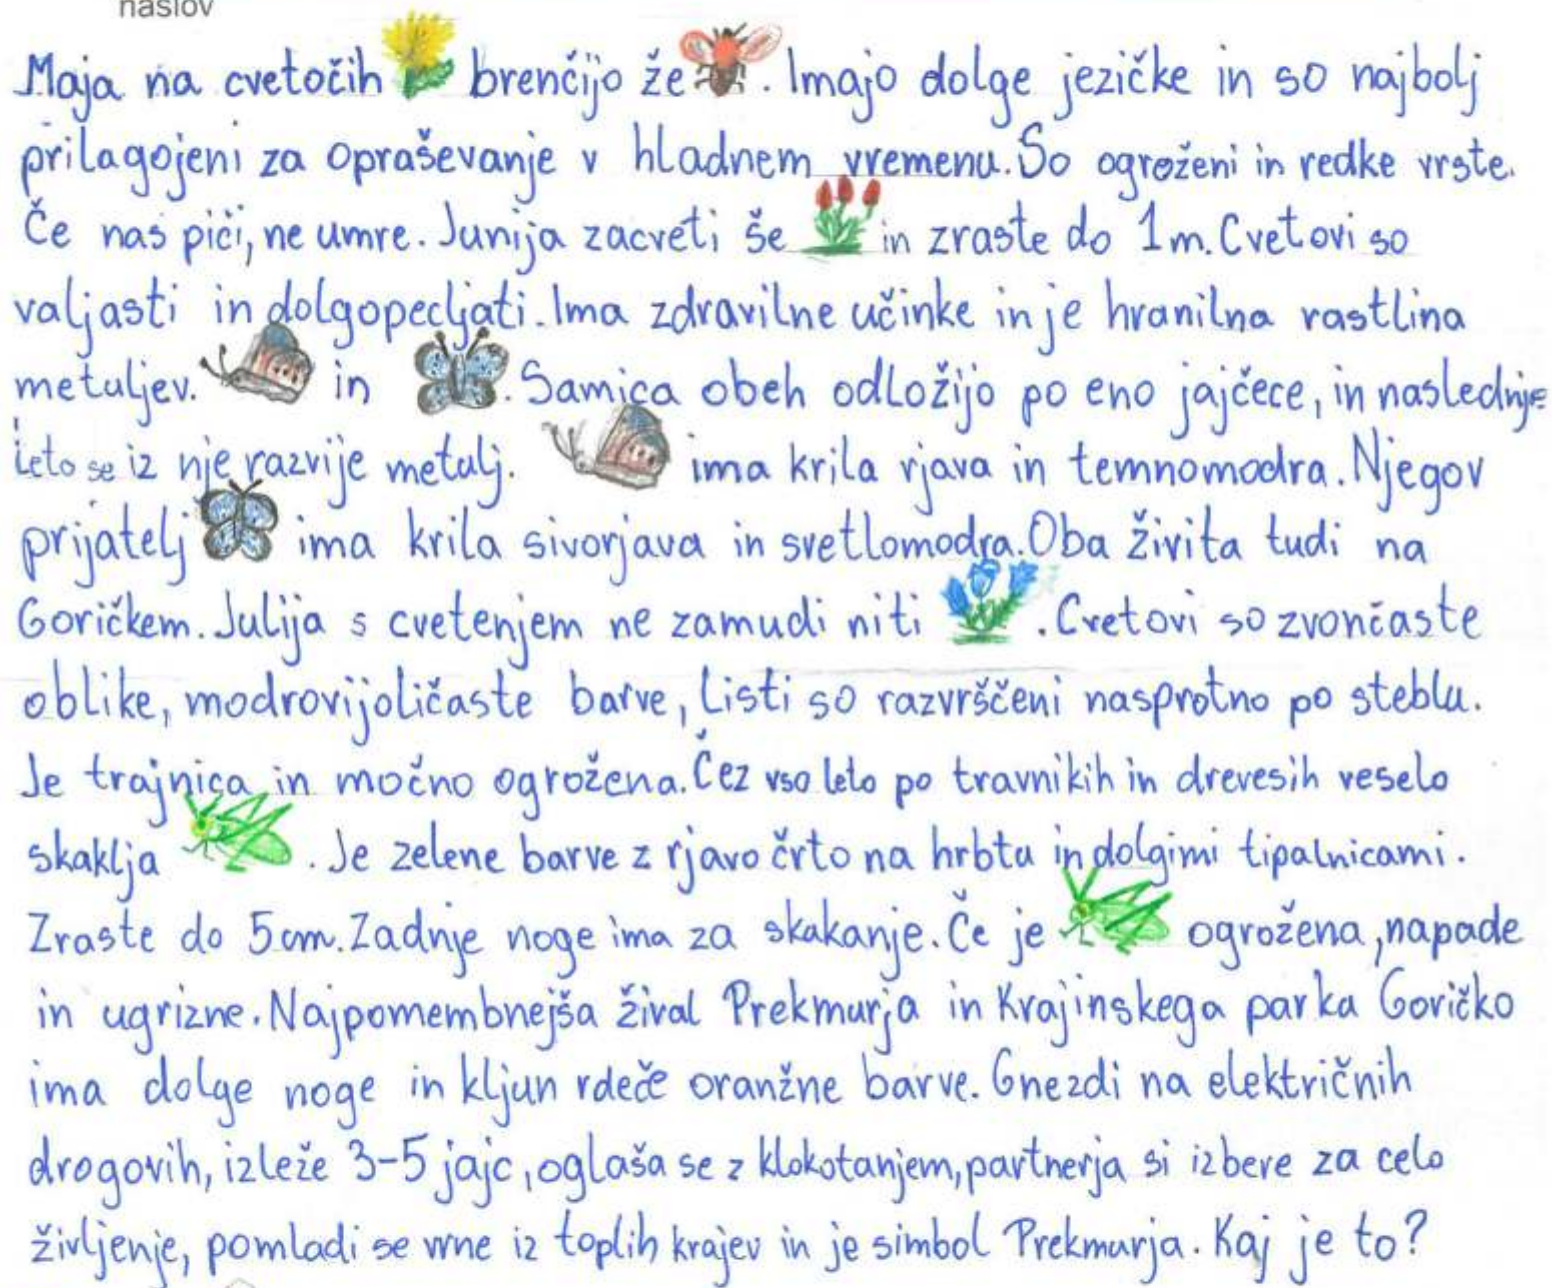 naslov
Maja na cvetočih brenčijo že . Imajo dolge jezičke in so najbolj
prilagojeni za opraševanje v hladnem vremenu. So ogroženi in redke vrste.
Če nas piči, ne umre. Junija zacveti še in zraste do 1m. Cvetovi so
valjasti in dolgopecljati. Ima zdravilne učinke in je hranilna rastlina
metuljev. in . Samica obeh odložijo po eno jajčece, in naslednje
leto se iz nje razvije metulj. ima krila rjava in temnomodra. Njegov
prijatelj ima krila sivorjava in svetlomodra. Oba živita tudi na
Goričkem. Julija s cvetenjem ne zamudi niti . Cvetovi so zvončaste
oblike, modrovijoličaste barve, listi so razvrščeni nasprotno po steblu.
Je trajnica in močno ogrožena. Čez vso leto po travnikih in drevesih veselo
skaklja . Je zelene barve z rjavo črto na hrbtu in dolgimi tipalnicami.
Zraste do 5cm. Zadnje noge ima za skakanje. Če je ogrožena, napade
in ugrizne. Najpomembnejša žival Prekmurja in Krajinskega parka Goričko
ima dolge noge in kljun rdeče oranžne barve. Gnezdi na električnih
drogovih, izleže 3-5 jajc, oglaša se z klokotanjem, partnerja si izbere za celo
življenje, pomladi se vrne iz toplih krajev in je simbol Prekmurja. Kaj je to?